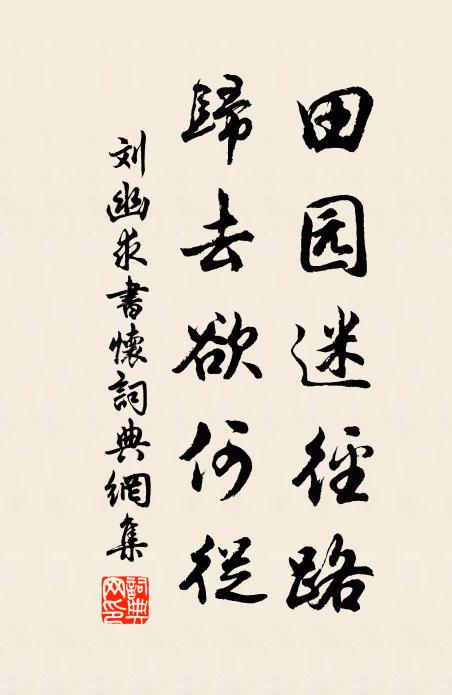 田园迷徑路
歸去欲何從
刘幽求書懷詞典網集
詞典网印